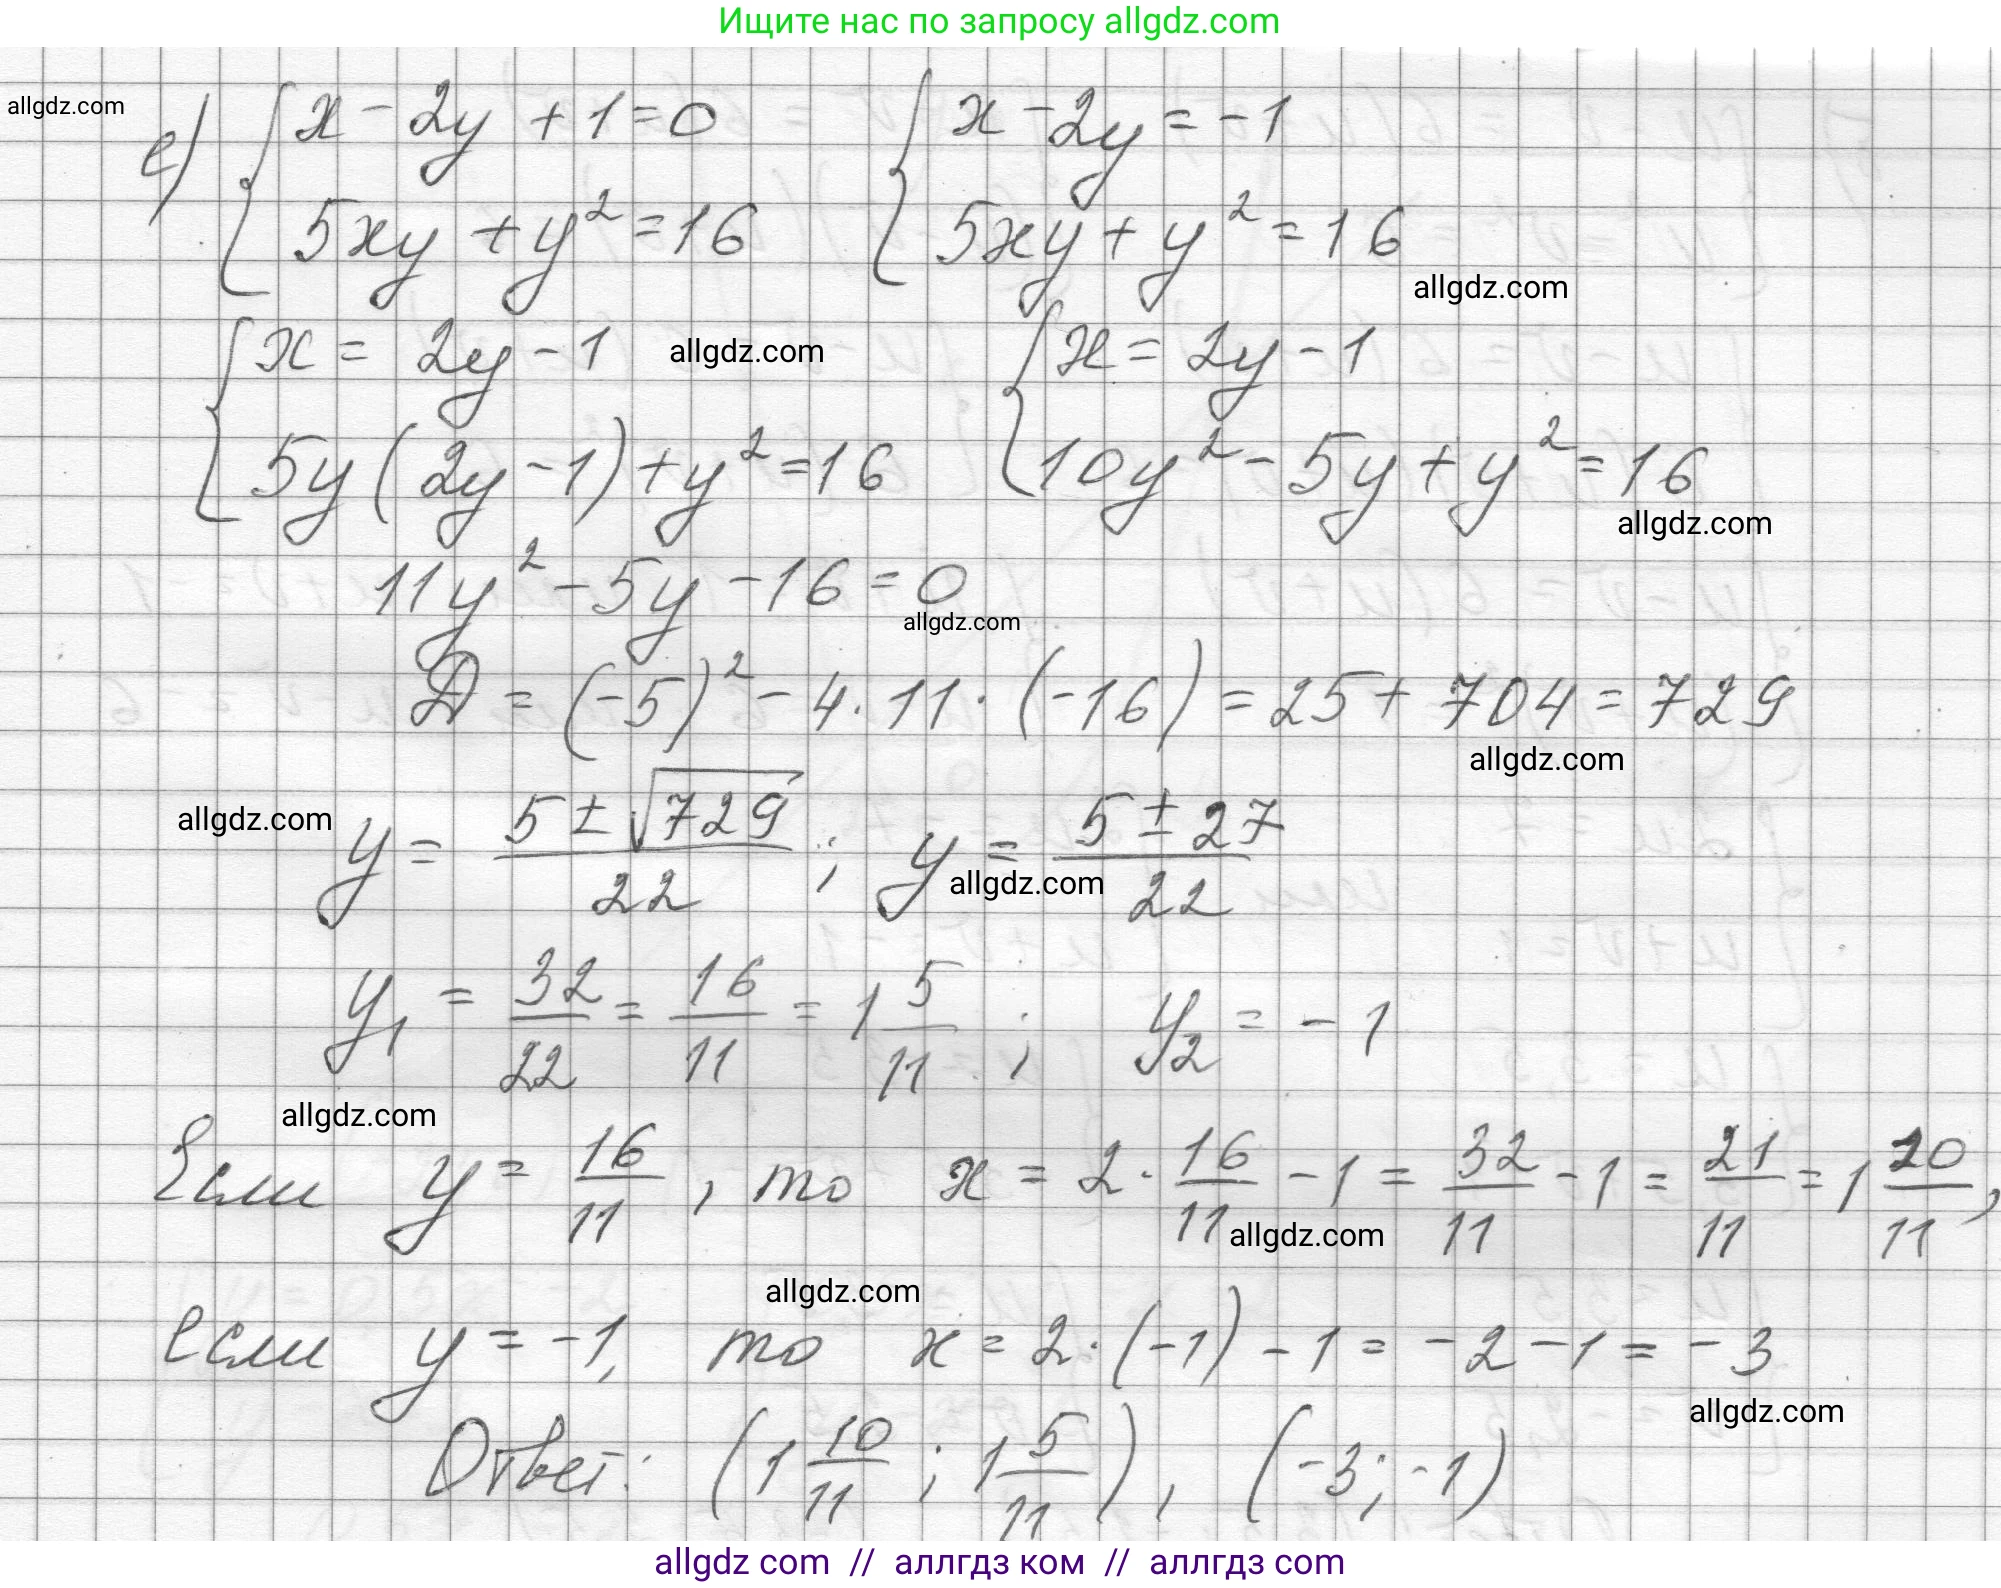 Ищите нас по запросу allgdz.com
allgdz.com
е) { x - 2y + 1 = 0 { x - 2y = -1
5xy + y² = 16 5xy + y² = 16
allgdz.com
{ x = 2y - 1 allgdz.com { x = 2y - 1
5y(2y - 1) + y² = 16 10y² - 5y + y² = 16
allgdz.com
11y² - 5y - 16 = 0
allgdz.com
D = (-5)² - 4 · 11 · (-16) = 25 + 704 = 729
allgdz.com
allgdz.com
y = (5 ± √729)/22 ; y = (5 ± 27)/22
allgdz.com
y₁ = 32/22 = 16/11 = 1 5/11 ; y₂ = -1
allgdz.com
Если y = 16/11 , то x = 2 · 16/11 - 1 = 32/11 - 1 = 21/11 = 1 10/11 ,
allgdz.com
allgdz.com
если y = -1, то x = 2 · (-1) - 1 = -2 - 1 = -3
allgdz.com
Ответ: (1 10/11 ; 1 5/11) , (-3; -1)
allgdz com // аллгдз ком // аллгдз com